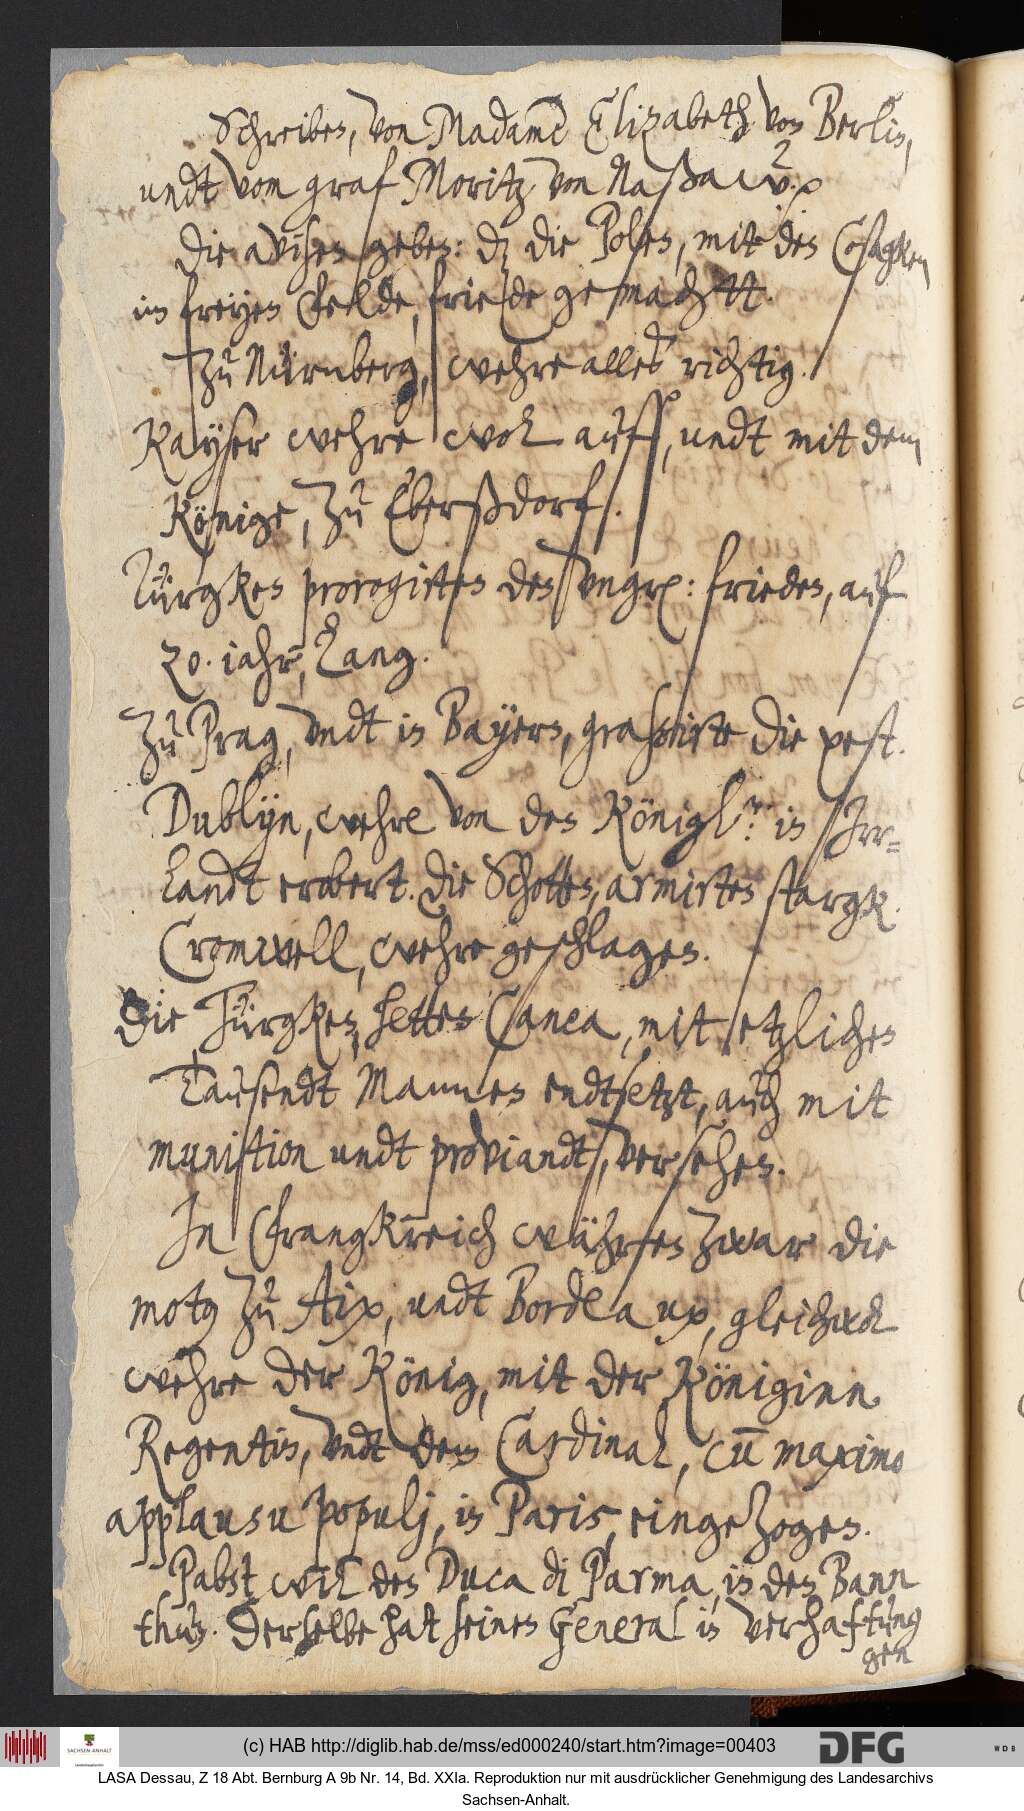 Schreiben, von Madame Elizabeth von Berlin,
undt vom graf Moritz von Naßaw
Die avisen geben: dz die Polen, mit den Cosagken
im freyen Felde, friede gemacht.
Zu Nürnberg, wehre alles richtig.
Kayser wehre wol auff, undt mit dem
Könige, zu Eberßdorf.
Türgken prorogirten den Ungr: frieden, auf
20. iahr, lang.
Zu Prag, undt in Bayern, grassirte die pest.
Dublijn, wehre von den Königl: in Irr-
landt erobert. Die Schotten, armirten stargk.
Cromwell, wehre geschlagen.
Die Türgken, hetten Canea, mit etzlichen
Tausendt Mannen endtsetzt, auch mit
munition undt proviandt, versehen.
In Frangkreich währen zwar die
motus zu Aix, undt Bordeaux, gleichwol
wehre der König, mit der Königinn
Regentin, undt dem Cardinal, cum maximo
applausu populj, in Paris, eingezogen.
Pabst wil den Duca di Parma, in den Bann
thun. Derselbe hat seinen General in verhaftung
gen
(c) HAB http://diglib.hab.de/mss/ed000240/start.htm?image=00403
SACHSEN-ANHALT
DFG
WDB
LASA Dessau, Z 18 Abt. Bernburg A 9b Nr. 14, Bd. XXIa. Reproduktion nur mit ausdrücklicher Genehmigung des Landesarchivs
Sachsen-Anhalt.